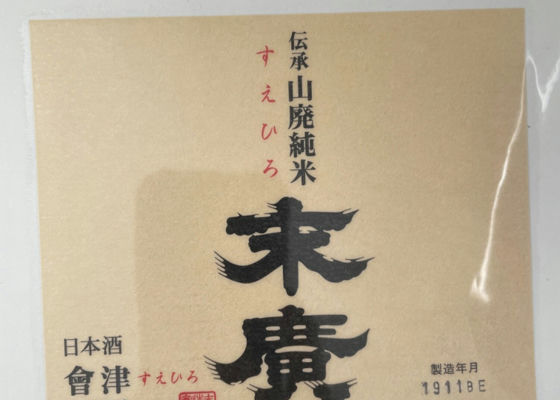 伝承山廃純米
すえひろ
末廣
日本酒
會津 すえひろ
製造年月
19118E